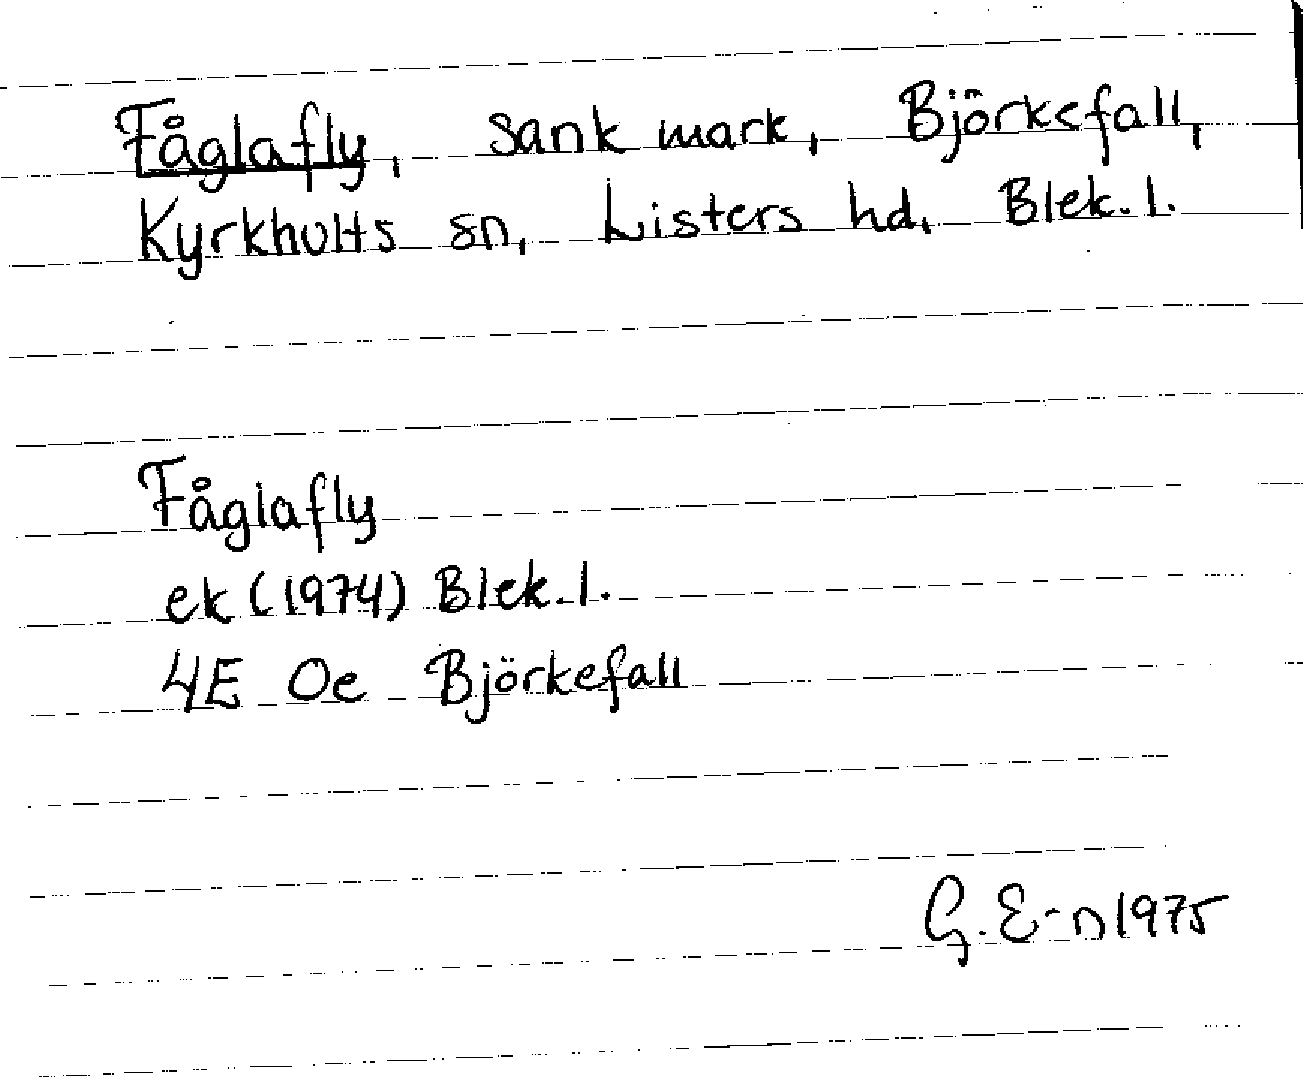 Fåglafly, sank mark, Björkefall,
Kyrkhults sn, Listers hd, Blek. l.
Fåglafly
ek (1974) Blek. l.
4E 0e Björkefall
G. E-n 1975